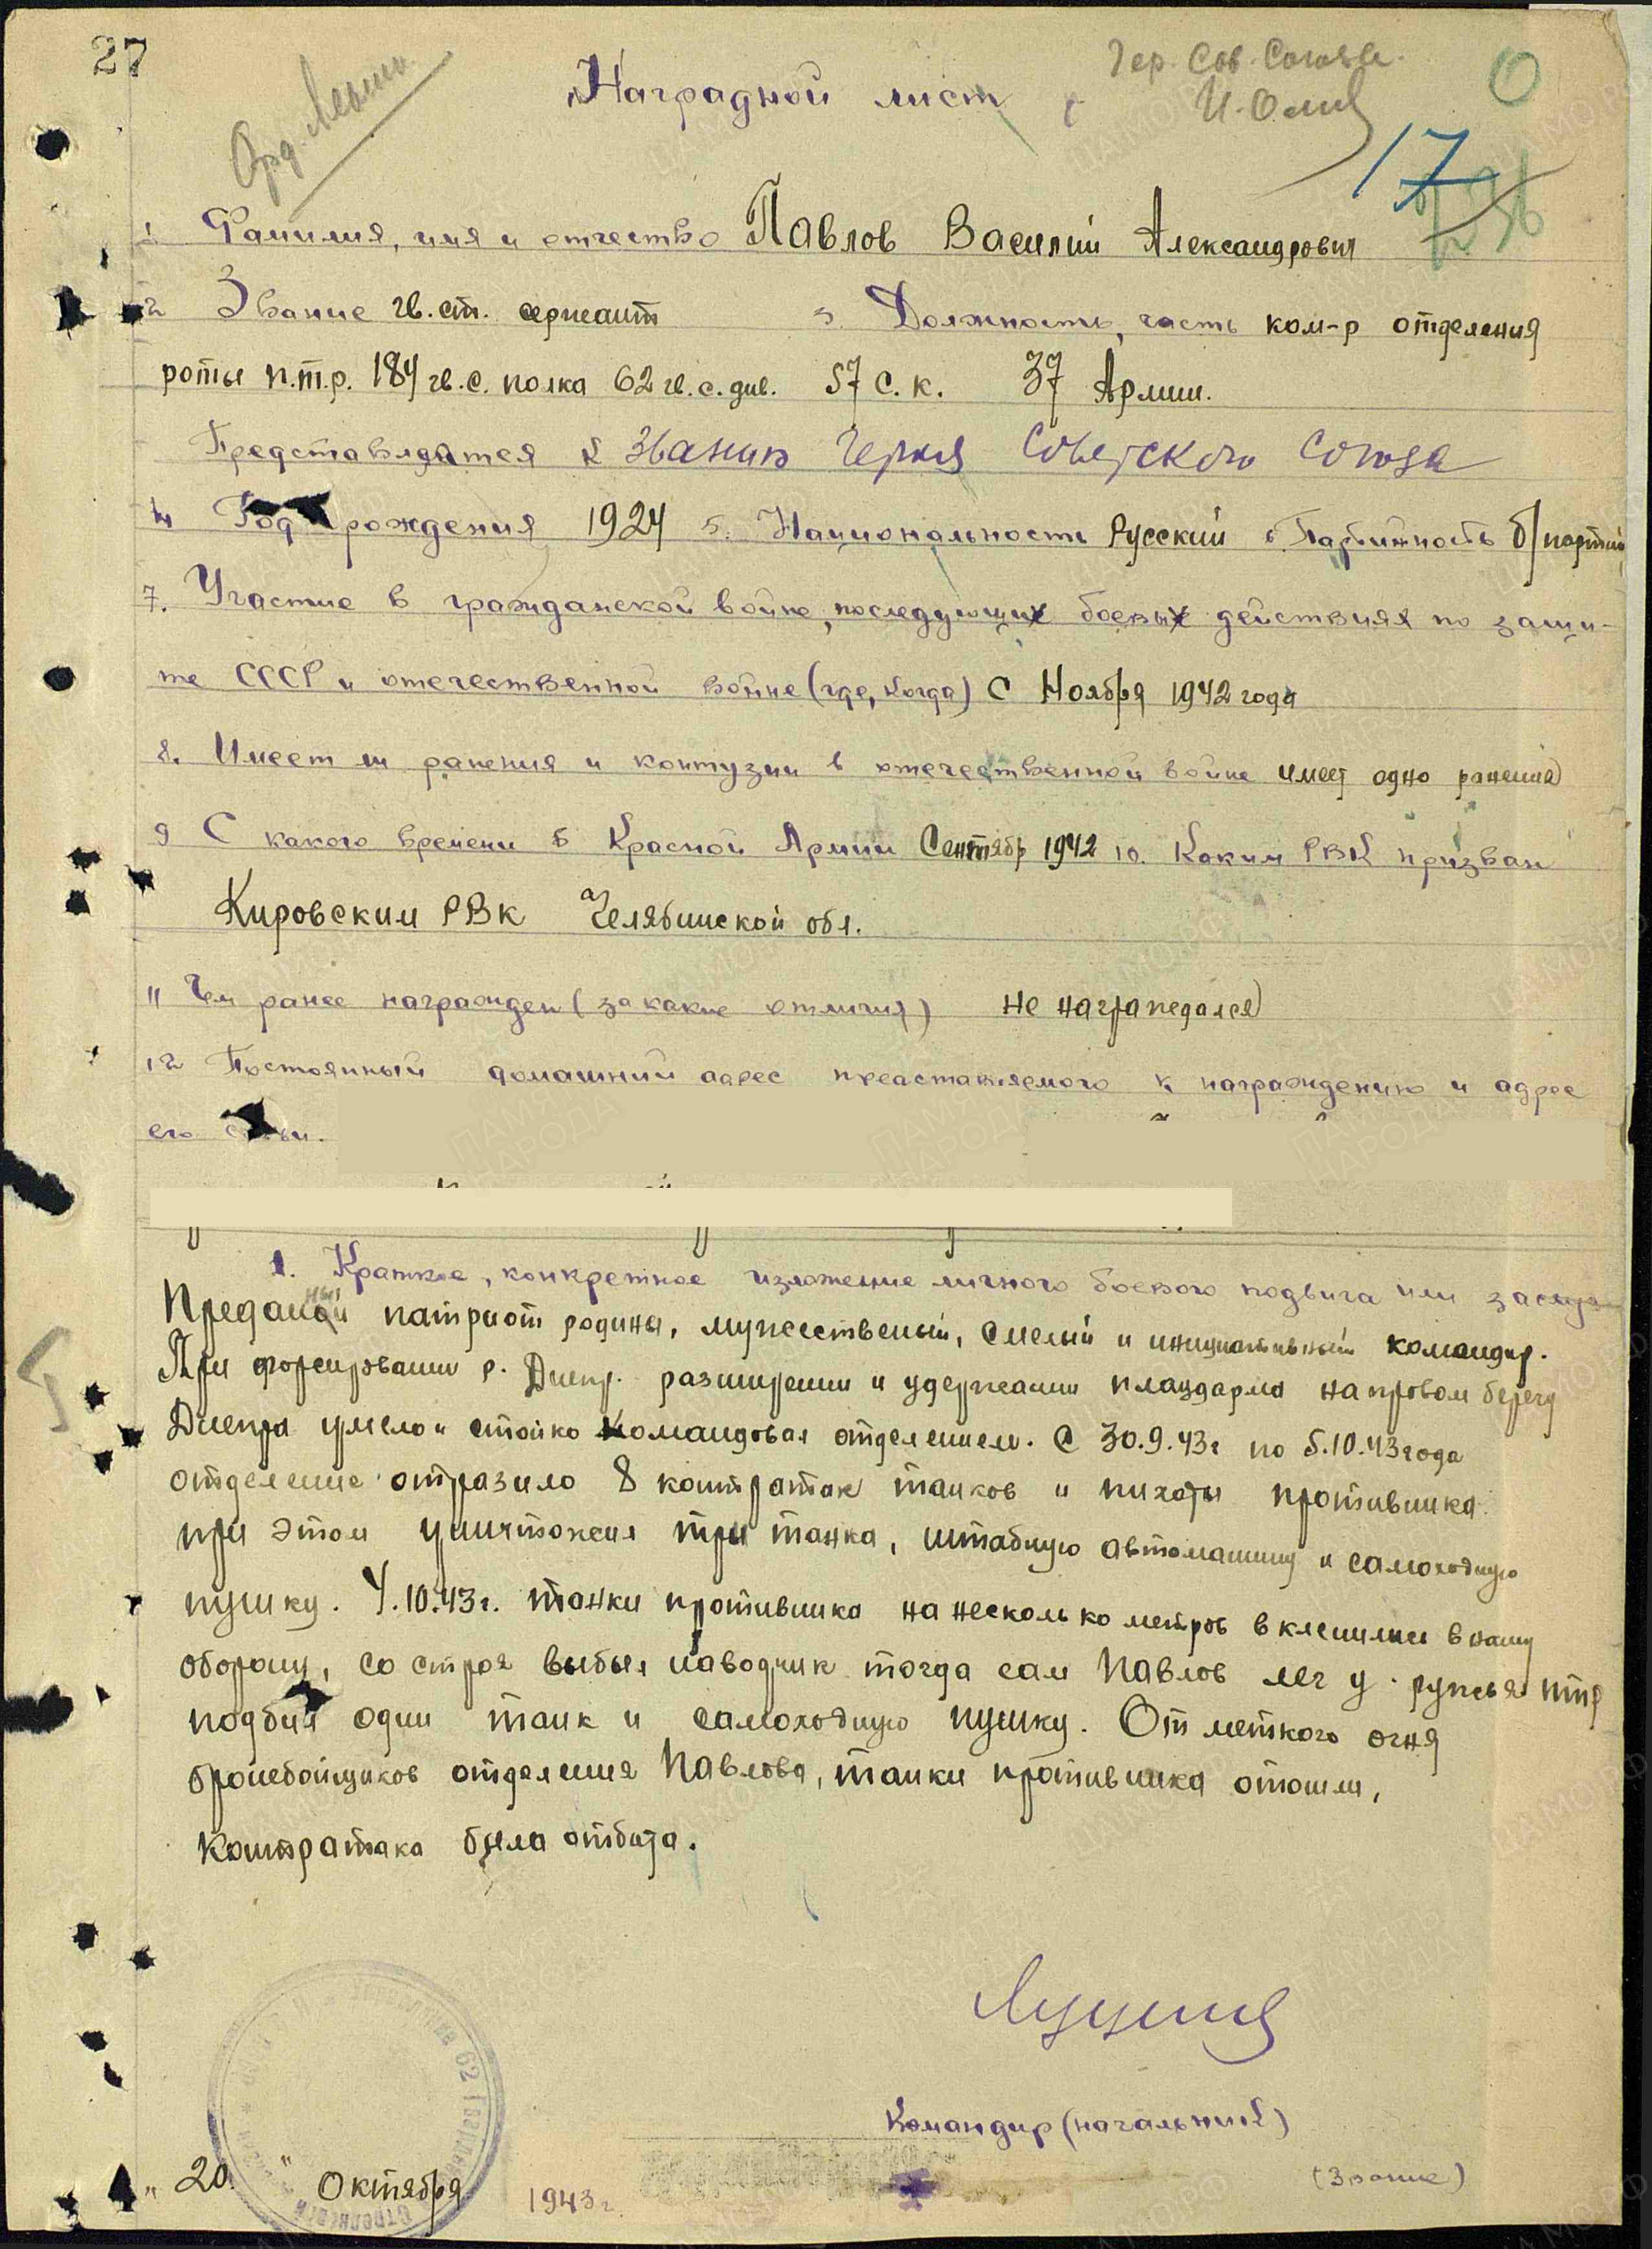 27
Орд. Ленина
Гер. Сов. Союза.
Наградной лист
17
1 Фамилия, имя и отчество Павлов Василий Александрович
2 Звание гв. ст. сержант 3. Должность, часть ком-р отделения
роты п.т.р. 184 гв. с. полка 62 гв. с. див. 57 с. к. 37 Армии.
Представляется к званию Героя Советского Союза
4 Год рождения 1924 5. Национальность Русский 6 Партийность б/партий
7. Участие в гражданской войне, последующих боевых действиях по защи-
те СССР и отечественной войне (где, когда) С Ноября 1942 года
8. Имеет ли ранения и контузии в отечественной войне имеет одно ранения
9 С какого времени в Красной Армии Сентябр 1942 10. Каким РВК призван
Кировским РВК Челябинской обл.
11 Чем ранее награжден (за какие отличия) не награждался
12 Постоянный домашний адрес представляемого к награждению и адрес
его семьи.
1. Краткое, конкретное изложение личного боевого подвига или заслуг
Преданный патриот родины, мужественый, смелый и инициативный командир.
При форсировании р. Днепр. разширении и удержании плацдарма на правом берегу
Днепра умело и стойко командовал отделением. С 30.9.43г по 5.10.43 года
отделение отразило 8 контратак танков и пихоты противника.
при этом уничтожил три танка, штабную автомашину и самоходную
пушку. 4.10.43г. танки противника на несколько метров вклинились в нашу
оборону, со строя выбыл наводчик тогда сам Павлов лег у ружья птр
подбил один танк и самоходную пушку. От меткого огня
бронебойщиков отделения Павлова, танки противника отошли,
контратака была отбита.
Командир (начальник)
(Звание)
"20" Октября 1943 г.